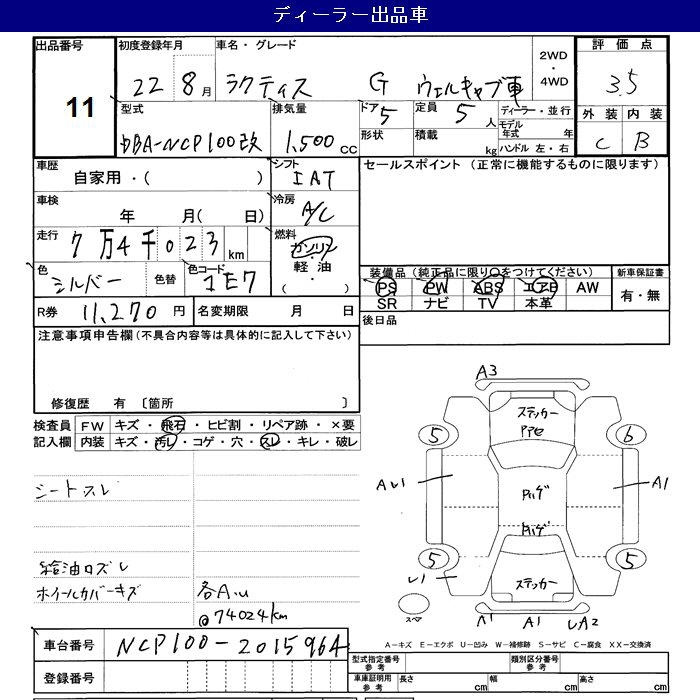 ディーラー出品車
出品番号 11
初度登録年月 22 8月
車名・グレード ラクティス G ウェルキャブ車
2WD・4WD
評価点 3.5
型式 DBA-NCP100改
排気量 1,500cc
ドア 5
形状
定員 5人
積載 kg
ディーラー・並行
モデル年式 年
ハンドル 左・右
外装 C
内装 B
車歴 自家用・( )
シフト IAT
セールスポイント (正常に機能するものに限ります)
車検 年 月( 日)
冷房 A/C
走行 7万4千023km
燃料 ガソリン 軽油 ・( )
色 シルバー
色替
色コード 1E7
装備品(純正品に限り○をつけてください)
PS PW ABS エアB AW
SR ナビ TV 本革
新車保証書 有・無
R券 11,270円
名変期限 月 日
後日品
注意事項申告欄(不具合内容等は具体的に記入して下さい)
修復歴 有 〔箇所 〕
検査員記入欄
FW キズ・飛石・ヒビ割・リペア跡・×要
内装 キズ・汚レ・コゲ・穴・スレ・キレ・破レ
シートスレ
給油口ズレ
ホイールカバーキズ
各A.U
@74024km
A3
ステッカー
5
6
AU1
A1
5
5
U1
ステッカー
スペア
A1
A1
UA2
A-キズ E-エクボ U-凹み W-補修跡 S-サビ C-腐食 XX-交換済
車台番号 NCP100-2015964
登録番号
型式指定番号 参考
類別区分番号 参考
車庫証明用 参考
長さ cm
幅 cm
高さ cm